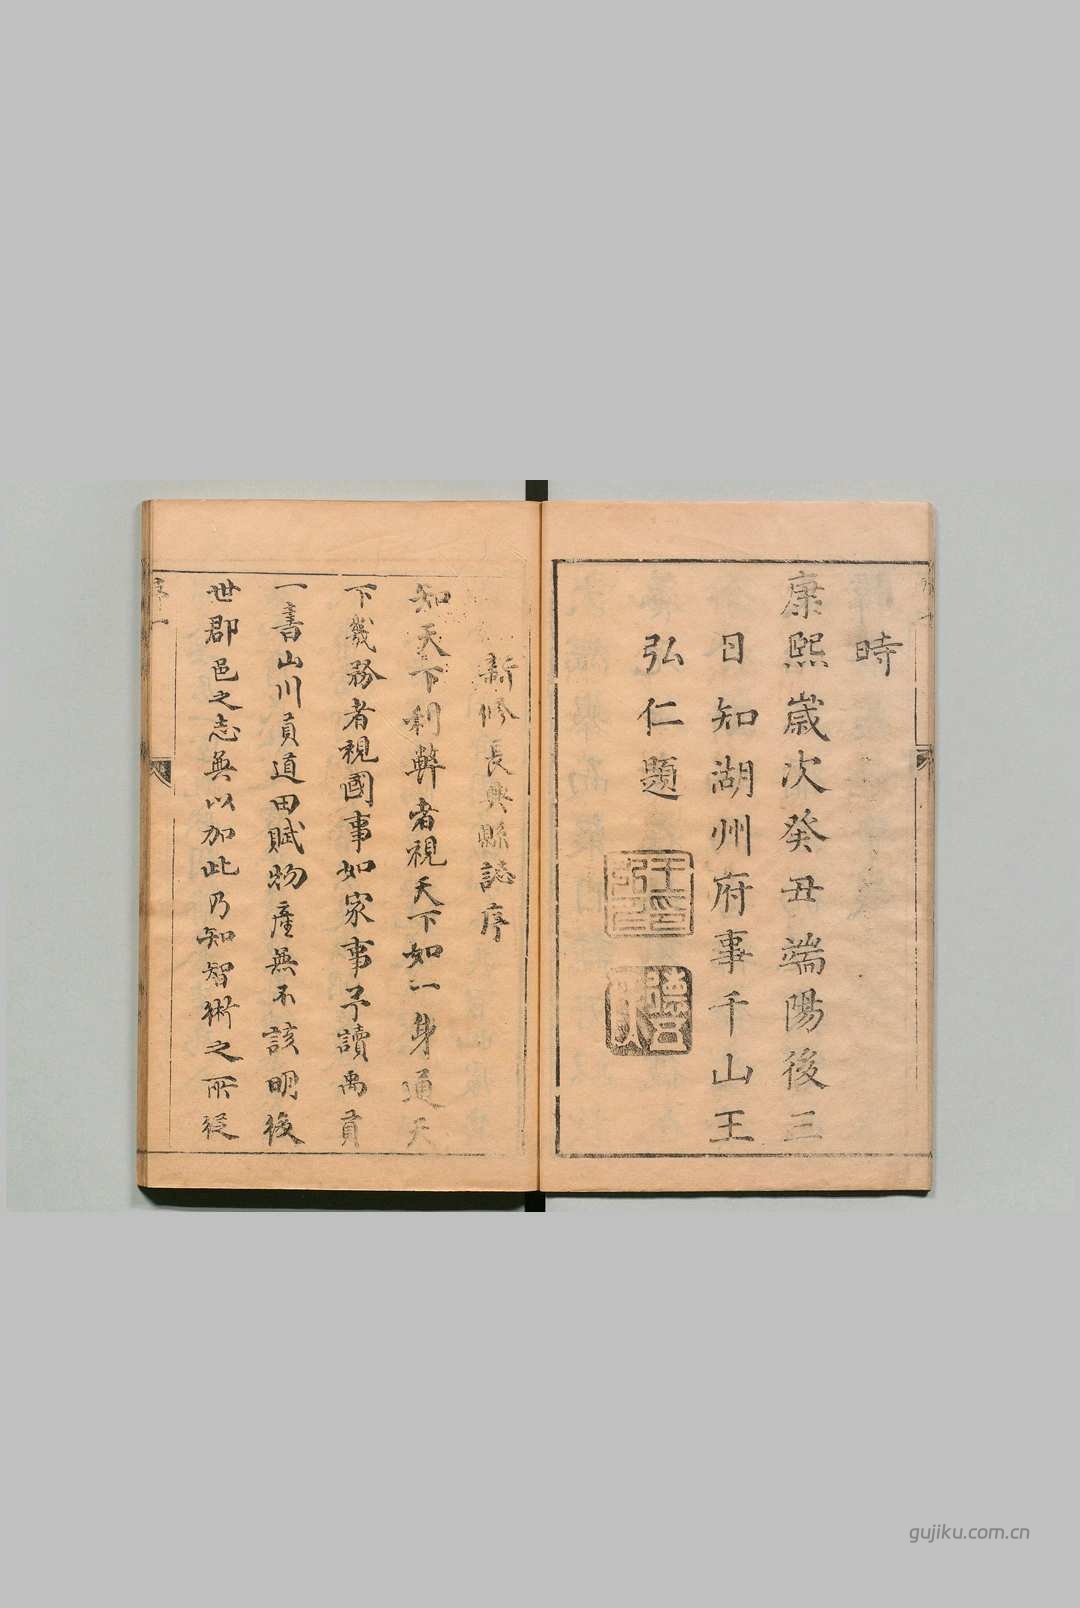 時
康熙歲次癸丑端陽後三
日知湖州府事千山王
弘仁題
新修長興縣誌序
知天下利弊者視天下如一身通天
下幾務者視國事如家事予讀禹貢
一書山川貢道田賦物產無不該明後
世郡邑之志無以加此乃知智術之所從
序一
gujiku.com.cn